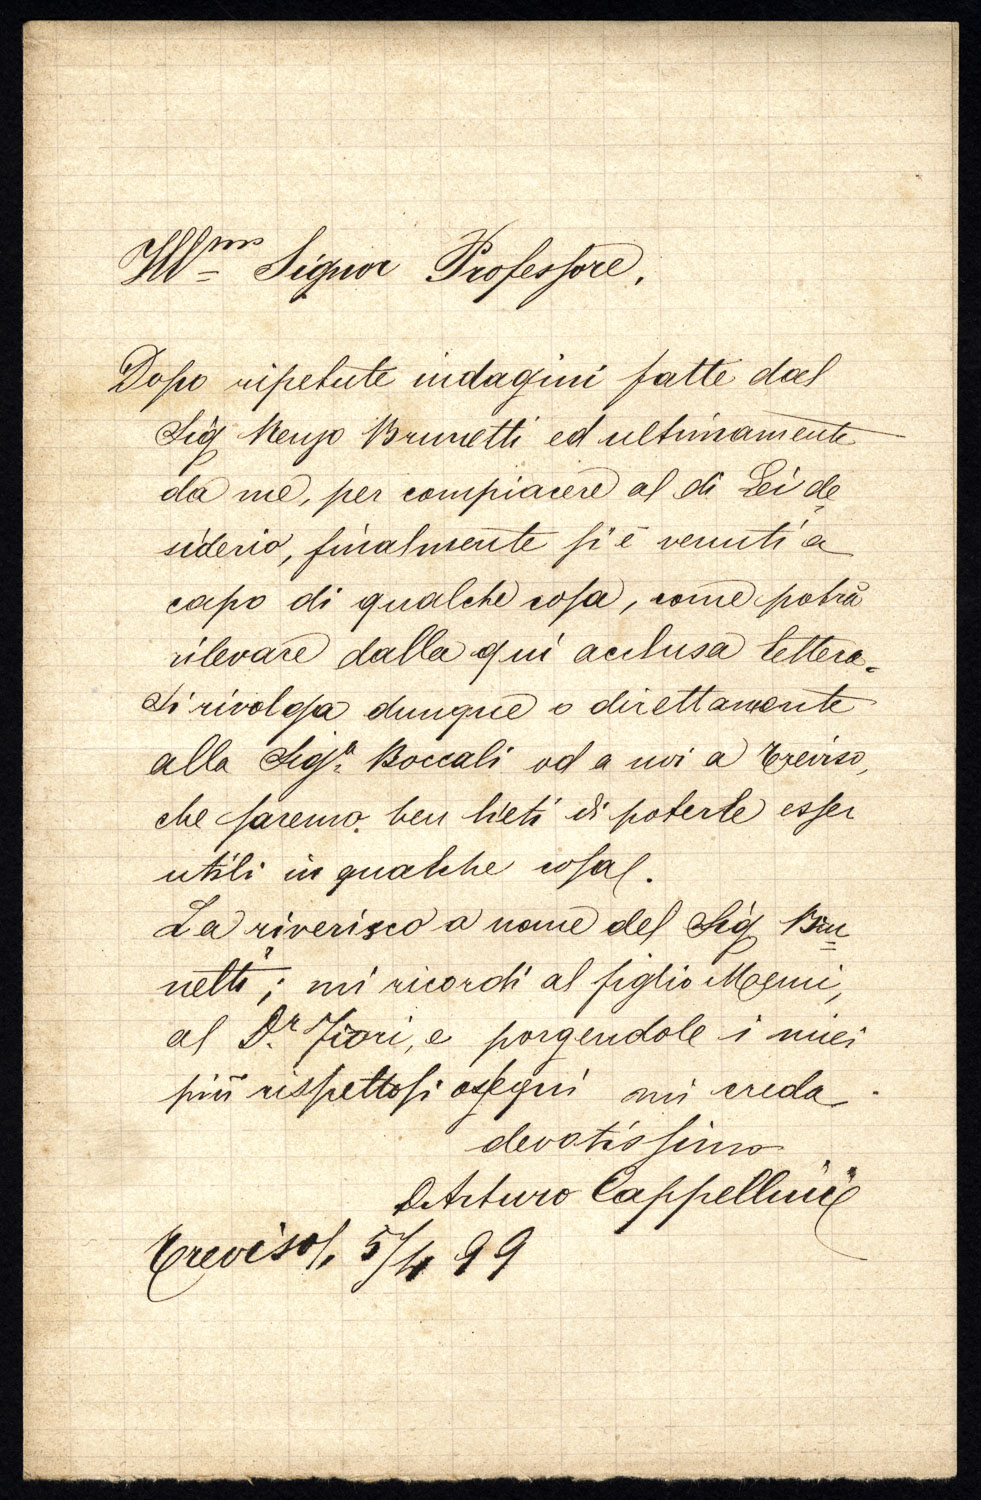 Ill^mo Signor Professore,
Dopo ripetute indagini fatte dal
Sig Renzo Brunetti ed ultimamente
da me, per compiacere al di Lei de
siderio, finalmente si è venuti a
capo di qualche cosa, come potrà
rilevare dalla qui acclusa lettera.
Si rivolga dunque o direttamente
alla Sig.^a Boccali od a noi a Treviso,
che saremo ben lieti di poterle esser
utili in qualche cosa.
La riverisco a nome del Sig Bru=
netti; mi ricordi al figlio Memi,
al D.^r Fiori, e porgendole i miei
più rispettosi ossequi mi creda
devotissimo
Arturo Cappellini
Treviso, 5/4 99